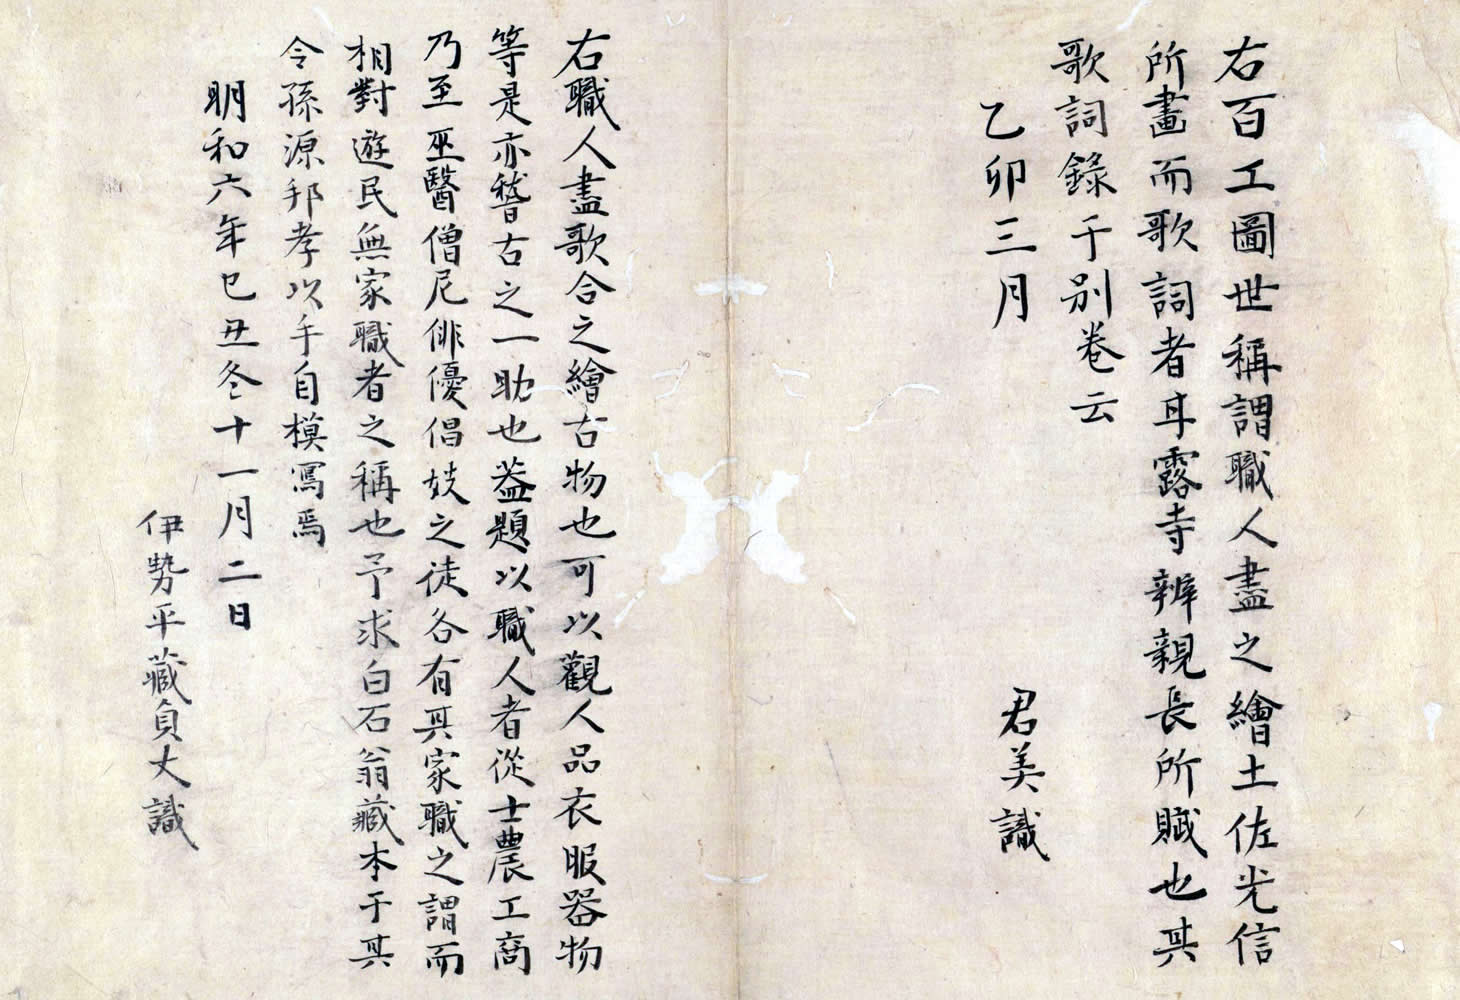 右百工圖世稱謂職人盡之繪土佐光信
所畫而歌詞者耳露寺辨親長所賦也其
歌詞錄于別卷云
乙卯三月
君美識
右職人盡歌合之繪古物也可以觀人品衣服器物
等是亦稽古之一助也蓋題以職人者從士農工商
乃至巫醫僧尼俳優倡妓之徒各有其家職之謂而
相對遊民無家職者之稱也予求白石翁藏本于其
令孫源邦孝以手自模寫焉
明和六年己丑冬十一月二日
伊勢平藏貞丈識